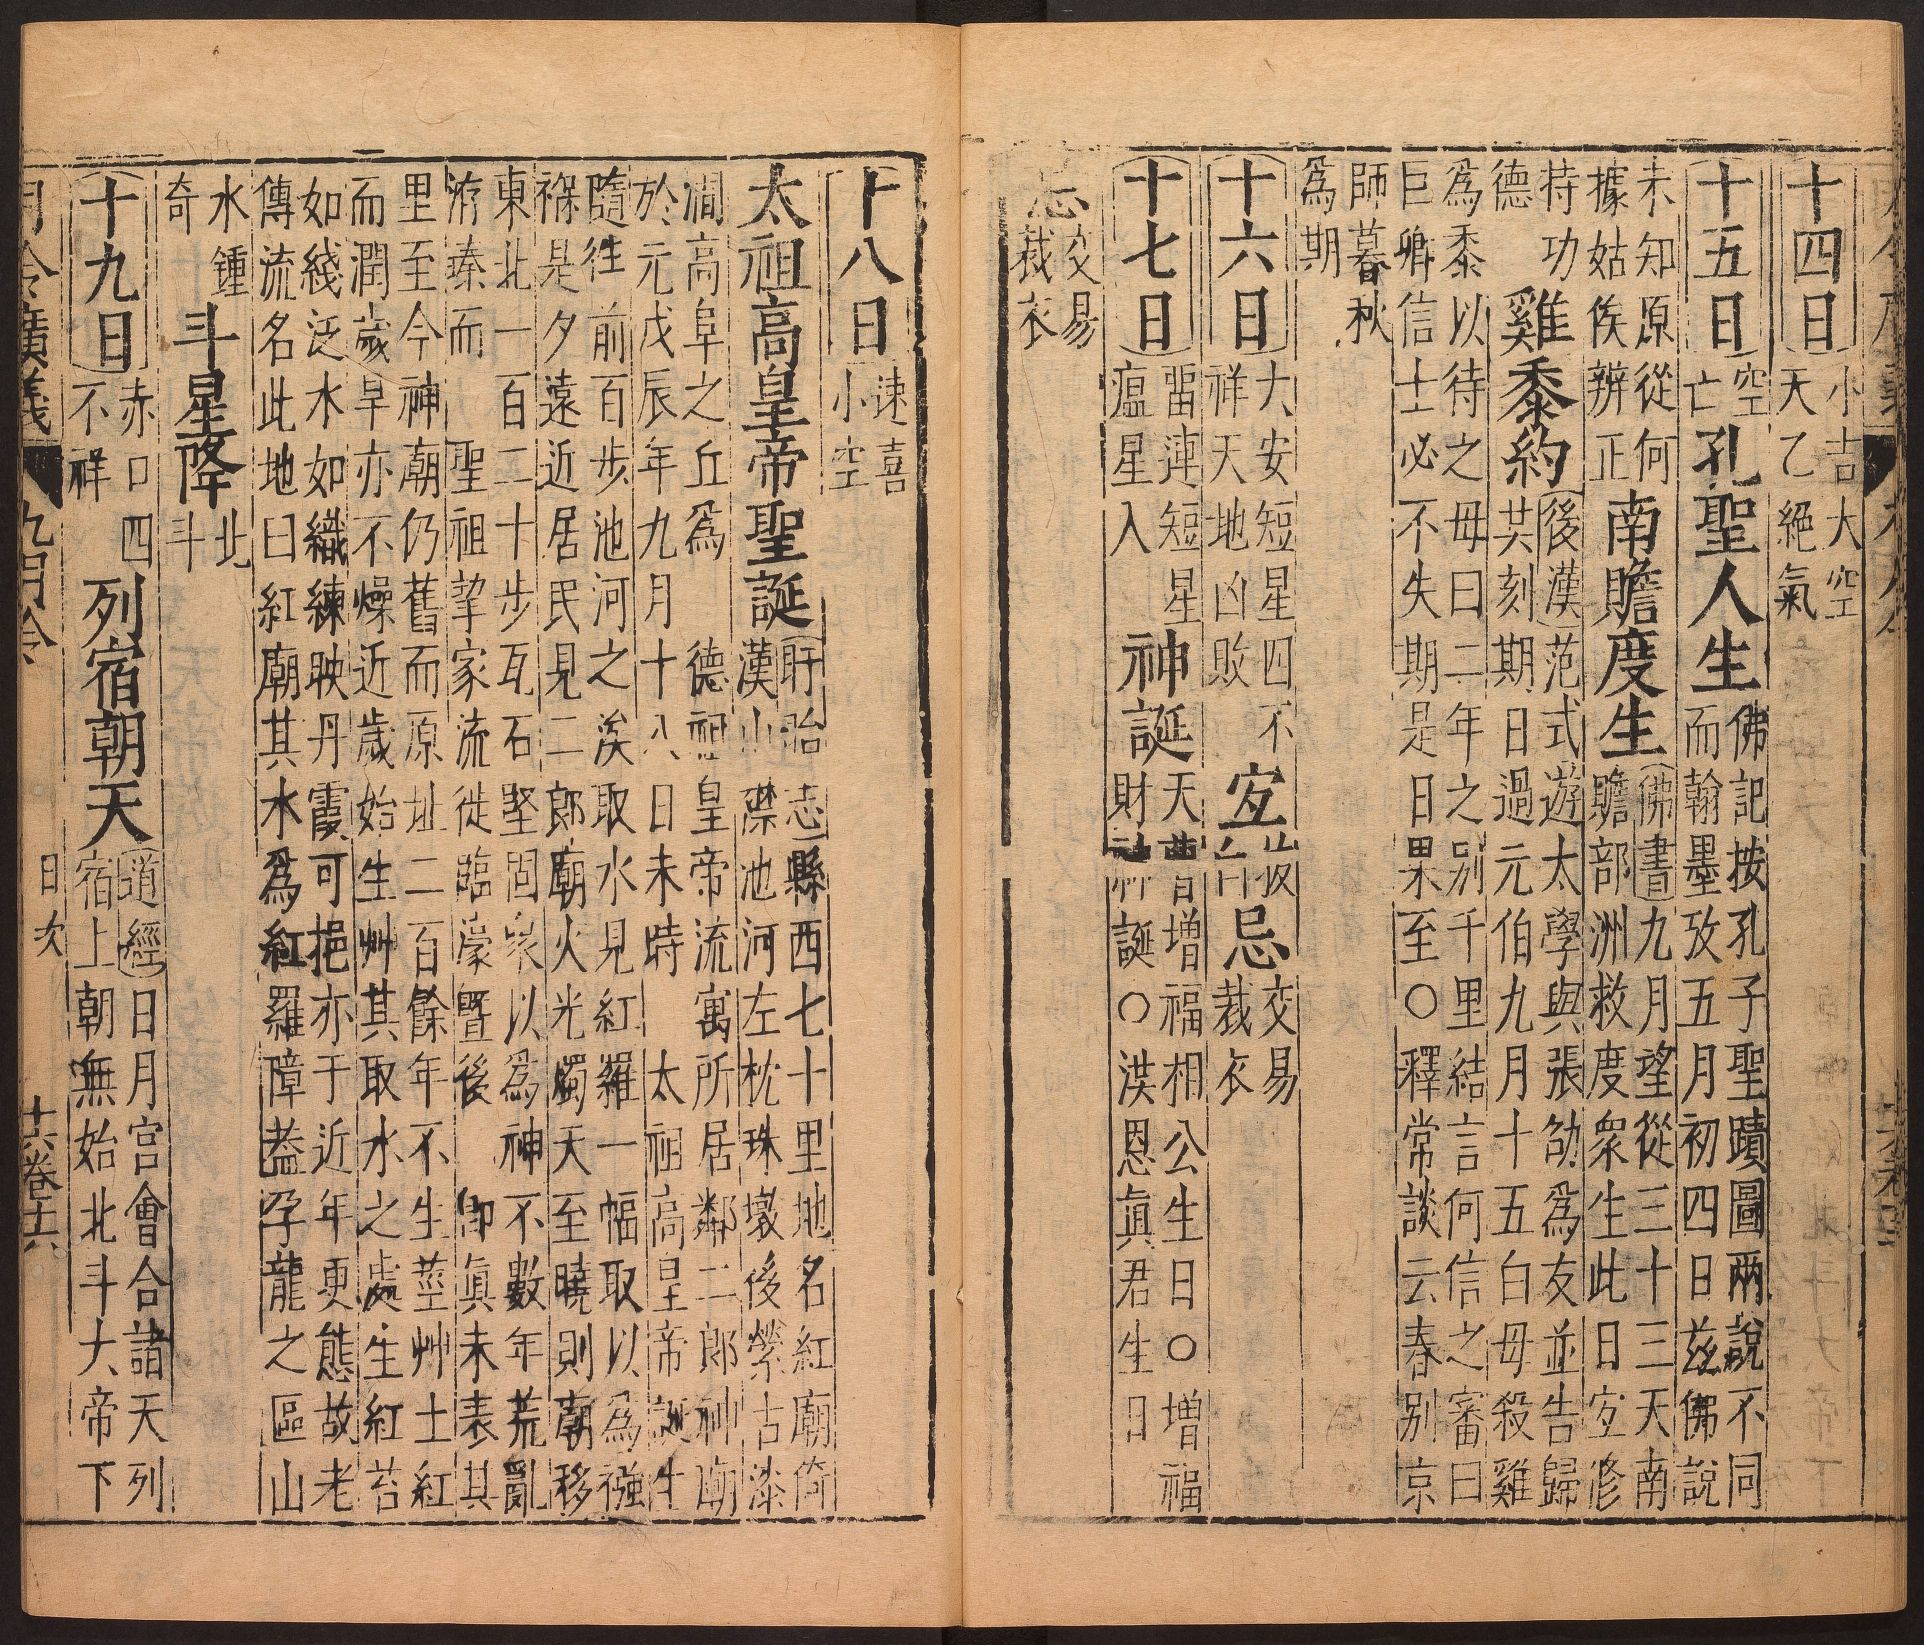 十四日 小吉大空
天乙絕氣
十五日 空
亡 孔聖人生 佛記按孔子聖蹟圖兩說不同
而翰墨攷五月初四日玆佛說
未知原從何
據姑俟辨正 南贍度生 佛書九月望從三十三天南
贍部洲救度衆生此日宜修
持功
德 雞黍約 後漢范式遊太學與張劭爲友並告歸
共刻期日過元伯九月十五白母殺雞
爲黍以待之母曰二年之別千里結言何信之審曰
巨卿信士必不失期是日果至○釋常談云春別京
師暮秋
爲期
十六日 大安短星四不
祥天地凶敗 宜 忌 交易
裁衣
十七日 畱連短星
瘟星入 神誕 天曹增福相公生日○增福
財神誕○洪恩眞君生日
忌 交易
裁衣
十八日 速喜
小空
太祖高皇帝聖誕 盱眙志縣西七十里地名紅廟倚
漢山 池河左枕珠墩後縈古漆
澗高阜之丘爲 德祖皇帝流寓所居鄰二郎神廟
於元戊辰年九月十八日未時 太祖高皇帝誕生
隨往前百步池河之涘取水見紅羅一幅取以爲襁
褓是夕遠近居民見二郎廟火光燭天至曉則廟移
東北一百二十步瓦石堅固衆以爲神不數年荒亂
洊臻而 聖祖挈家流徙臨濠曁後 卽眞未表其
里至今神廟仍舊而原址二百餘年不生莖艸土紅
而潤歲旱亦不燥近歲始生艸其取水之處生紅苔
如綫泛水如織練映丹霞可挹亦于近年更態故老
傳流名此地曰紅廟其水爲紅羅障葢孕龍之區山
水鍾
奇 斗星降 北
斗
十九日 赤口四
不祥 列宿朝天 道經日月宮會合諸天列
宿上朝無始北斗大帝下
月令廣義 九月令 日次 十六卷十六